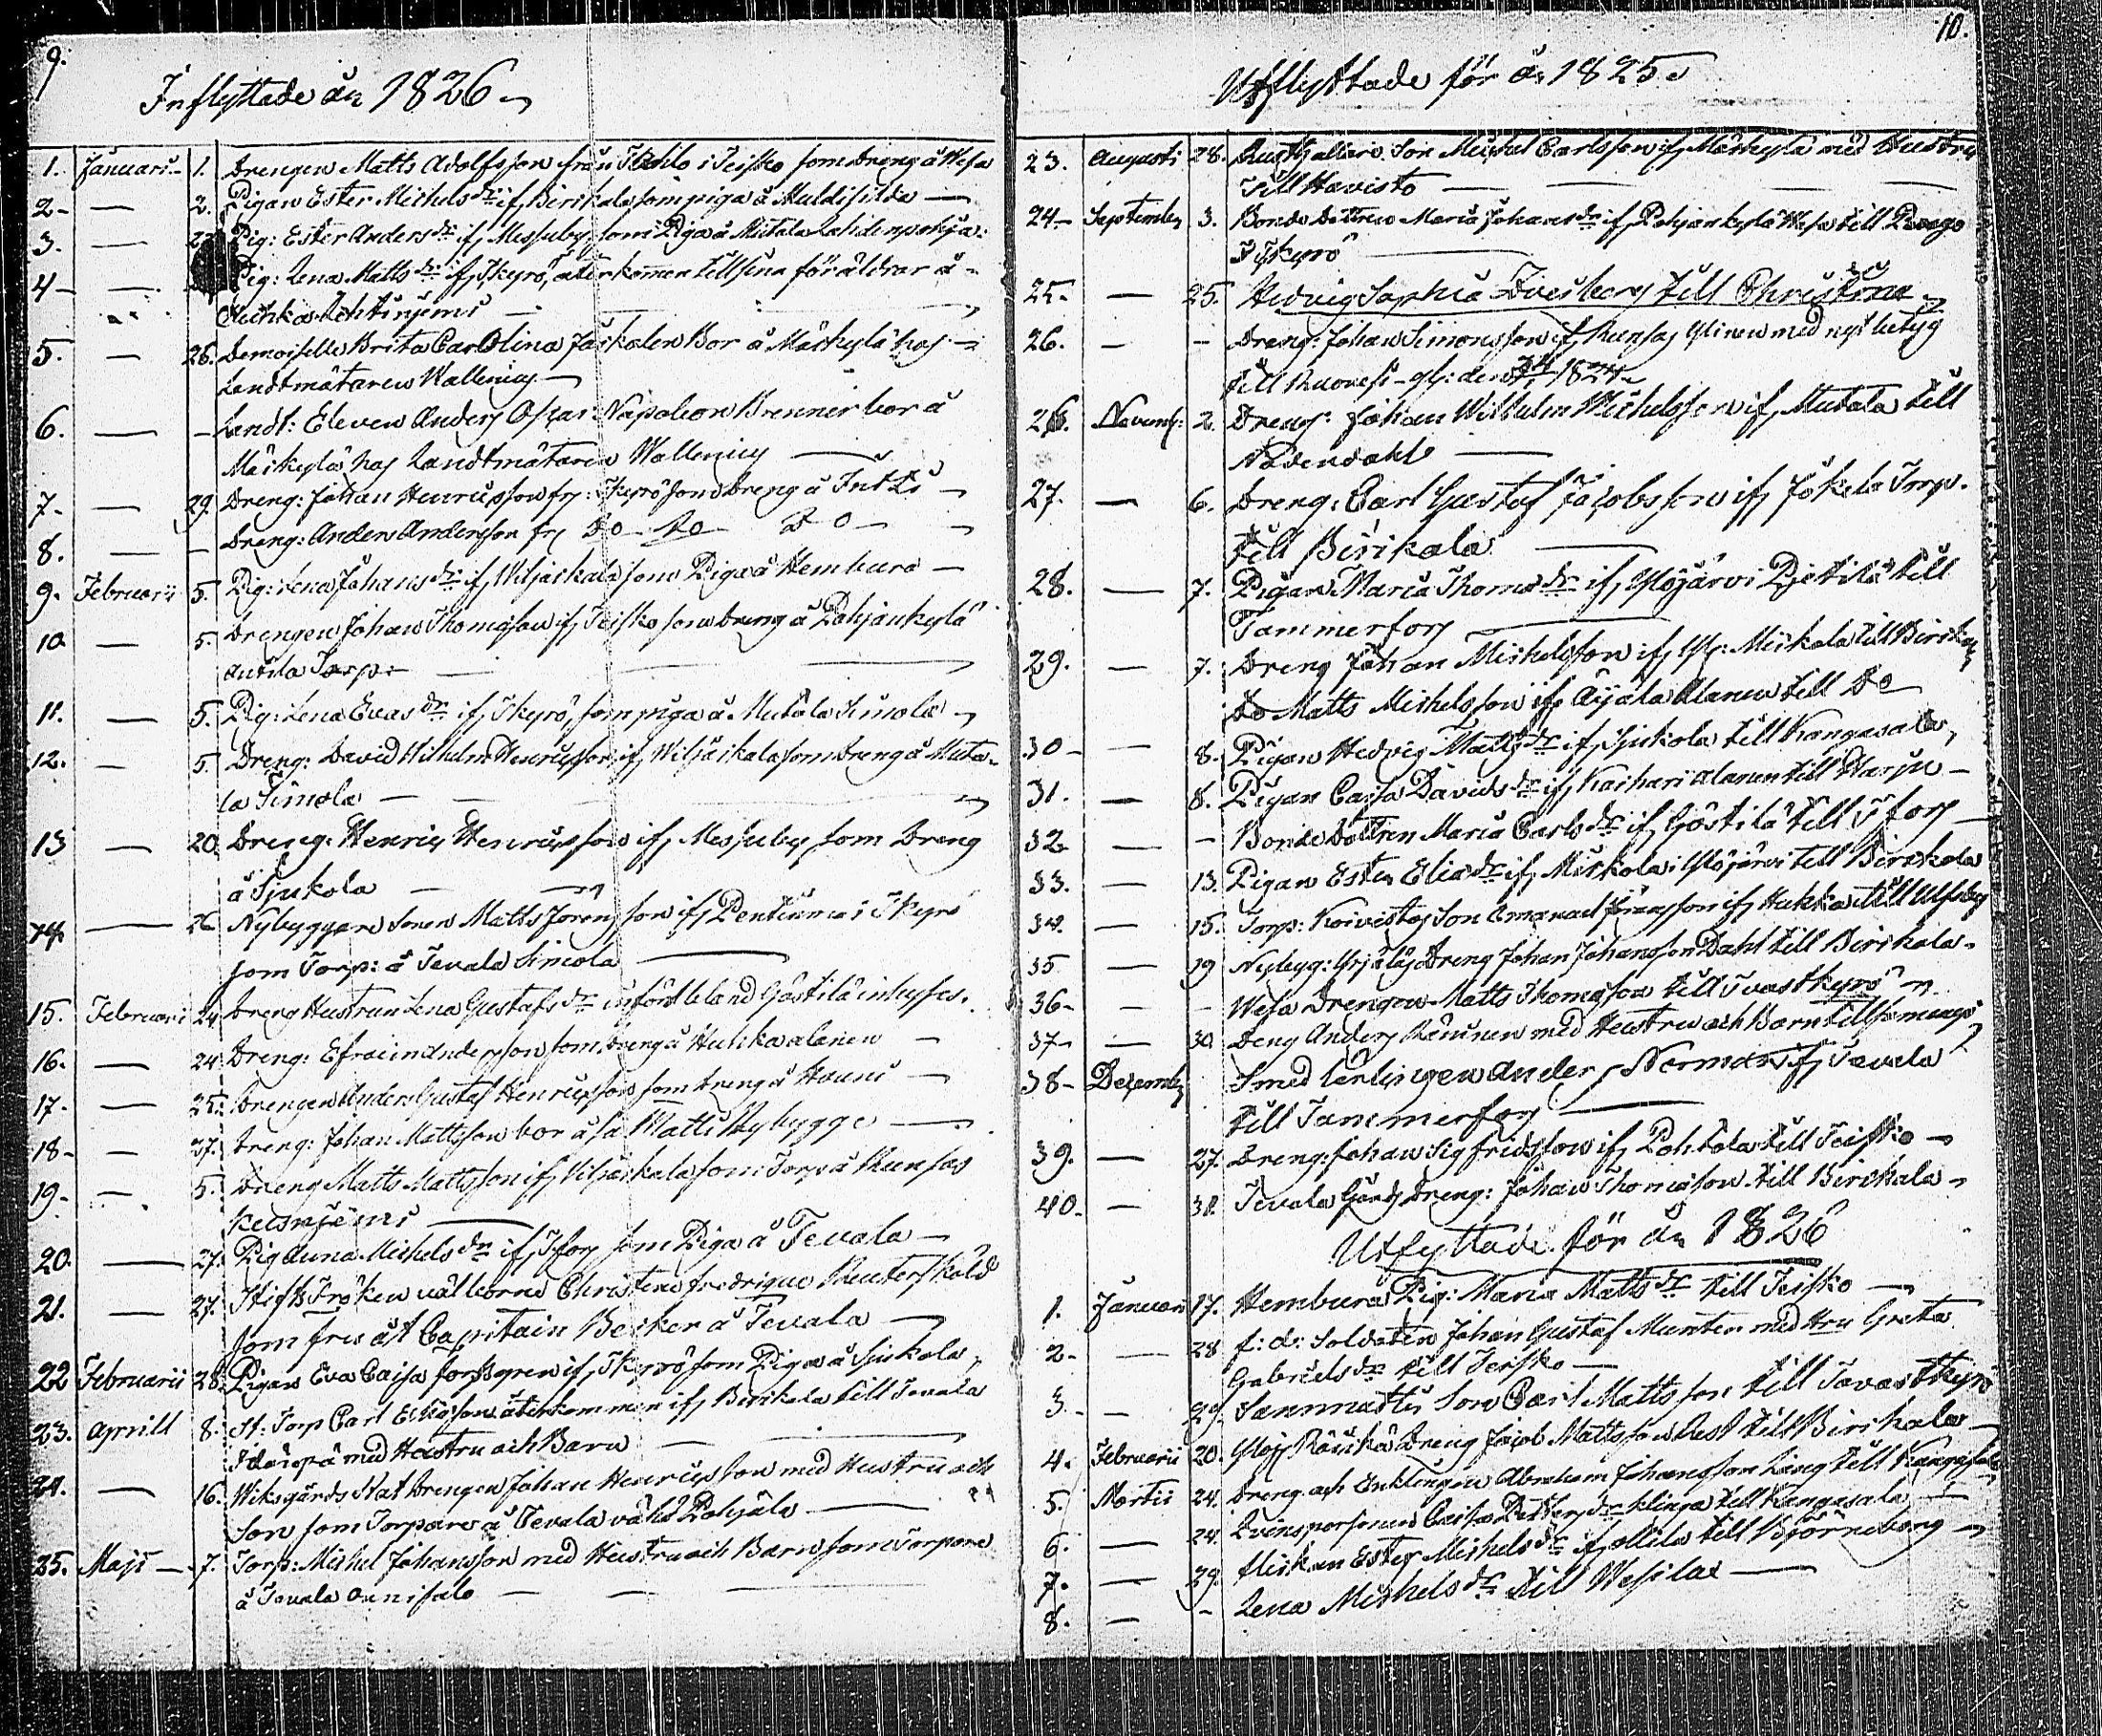 9.
Inflyttade år 1826
1. Januari 1. Drengen Matts Adolfsson från i Teisko som Dreng å Wesa
2 — 2. Pigan Ester Michels dr if Birkala som piga å
3. — Pig: Ester Anders dr if Messuby som Piga å Mutala Lahdenpohja
4 — Pig: Lena Matts dr if Ikyrö, återkommen till sina föräldrar å
Lehtiniemi
5. — 26. Demoiselle Brita Carolina bor å Mäkkylä hos
Landtmätaren Wallenius
6. — Landt: Eleven Anders Oscar Napoleon Brenner bor å
hos Landtmätaren Wallenius
7 — 29. Dreng: Johan Henricsson fr: Ikyrö som Dreng å Intti
8. — Dreng: Anders Andersson fr Do Do Do
9. Februarii 5. Pig: Lena Johans dr if Wiljakkala som Piga å Hembura
10 — 5. Drengen Johan Thomasson if Teisko som Dreng å Pohjankylä
Antila Torp:
11. — 5. Pig: Lena Evas dr if Ikyrö, som piga å Mutala Simola
12. — 5. Dreng: David Wilhelm Henricsson if Wiljakkala som Dreng å Muta-
la Simola
13 — 20. Dreng: Henric Henricsson if Messuby som Dreng
å Sjukola
14 — 26 Nybyggare sonen Matts son if Penttinma i Ikyrö
som Torp: å Tevala Simola
15. Februari 24 Dreng Hustrun Lena Gustafs dr införd bland Göstilä inhyses.
16. — 24 Dreng: Efraim Andersson som Dreng å Huhka alanen
17. — 25. Drengen Anders Gustaf Henricsson som Dreng å Hauni
18 — 27. Dreng: Johan Mattsson bor å Matti Nybygge
19 — 5. Dreng Matts Mattsson if Viljakkala som Torp å Runsas
20. — 27. Pig Anna Michels dr if Tfors som Piga å Tevala
21. — 27. Stifts Fröken välborne Christina Fredrique Reutersköld
som fru åt Capitain Becker å Tevala
22 Februarii 28. Pigan Eva Caisa Forssgren if Ikyrö som Piga å Sjukola
23. Aprill 8. St: Torp Carl Eliasson återkommen if Birkala till Tevala
med Hustru och Barn
24. — 16. Wiksgårds Stat Drengen Johan Henricsson med Hustru och
Son som Torpare å Tevala Pohjala
25. Maji 7. Torp: Michel Johansson med Hustru och Barn som Torpare
å Tevala
10.
Utflyttade för år 1825
23. Augusti 28. Rusthållare Son Michel Carlsson if Mäkkylä med Hustru
till Havisto
24 September 3. Bonde Dottren Maria Johans dr if Pohjankylä Wesa till
Ikyrö
25. — 25. Hedvig Sophia till Christina
26. — Dreng: Johan Simonsson if Runsas med nytt betyg
till Ruovesi 1824
26. Novemb: 2. Dreng: Johan Wilhelm Michelsson if Mutala till
Nådendahl
27. — 6. Dreng: Carl Gustaf Jacobsson if Jokela Torp.
till Birkala
28. — 7. Pigan Maria Thoms dr if Ylöjärvi Pjetilä till
Tammerfors
29. — 7. Dreng Johan Michelsson if Yl: Mickola till
Do Matts Michelsson if Äijälä Alanen till Do
30 — 8. Pigan Hedvig Matts dr if Sjukola till Kangasala
31. — 8. Pigan Caisa Davids dr if Kaihari alanen till Harju
32 — Bonde Dottren Maria Carls dr if Göstilä till Tfors
33. — 13. Pigan Ester Elias dr if Mickola i Ylöjärvi till Birckala
34. — 15. Torp: Koivistos Son Emanuel if Huhka till Ulfsby
35 — 19 Nybyg: Dreng Johan Johansson Dahl till Birckala
36 — Wesa Drengen Matts Thomasson till Tvastkyrö
37 — 30. Dreng Anders Räninen med Hustru och Barn till
38 — Decemb Smed lärlingen Anders Norman if Tevala
till Tammerfors
39. — 27. Dreng: Johan Sigfridsson if Pohtola till Teisko
40. — 31. Tevala Gårds Dreng: Johan Thomasson till Birckala
Utflyttade för år 1826
1. Januari 17. Hembura Pig: Maria Matts dr till Teisko
2 — 28 f: d: Soldaten Johan Gustaf Munter med Hru Greta
Gabriels dr till Teisko
3. — 29. Son Carl Mattsson till Tavastkyrö
4. Februarii 20. Ylöj Räikkä Dreng Jacob Mattsson Rast till Birckala
5. Martii 24. Dreng och Enklingen Abraham Johansson Lang till Kangasala
6. — 24. Qvinspersonen Caisa dr Klinga till Kangasala
7. — 29. Flickan Ester Michels dr if Ollila till Björneborg
8. — Lena Michels dr till Wesilax